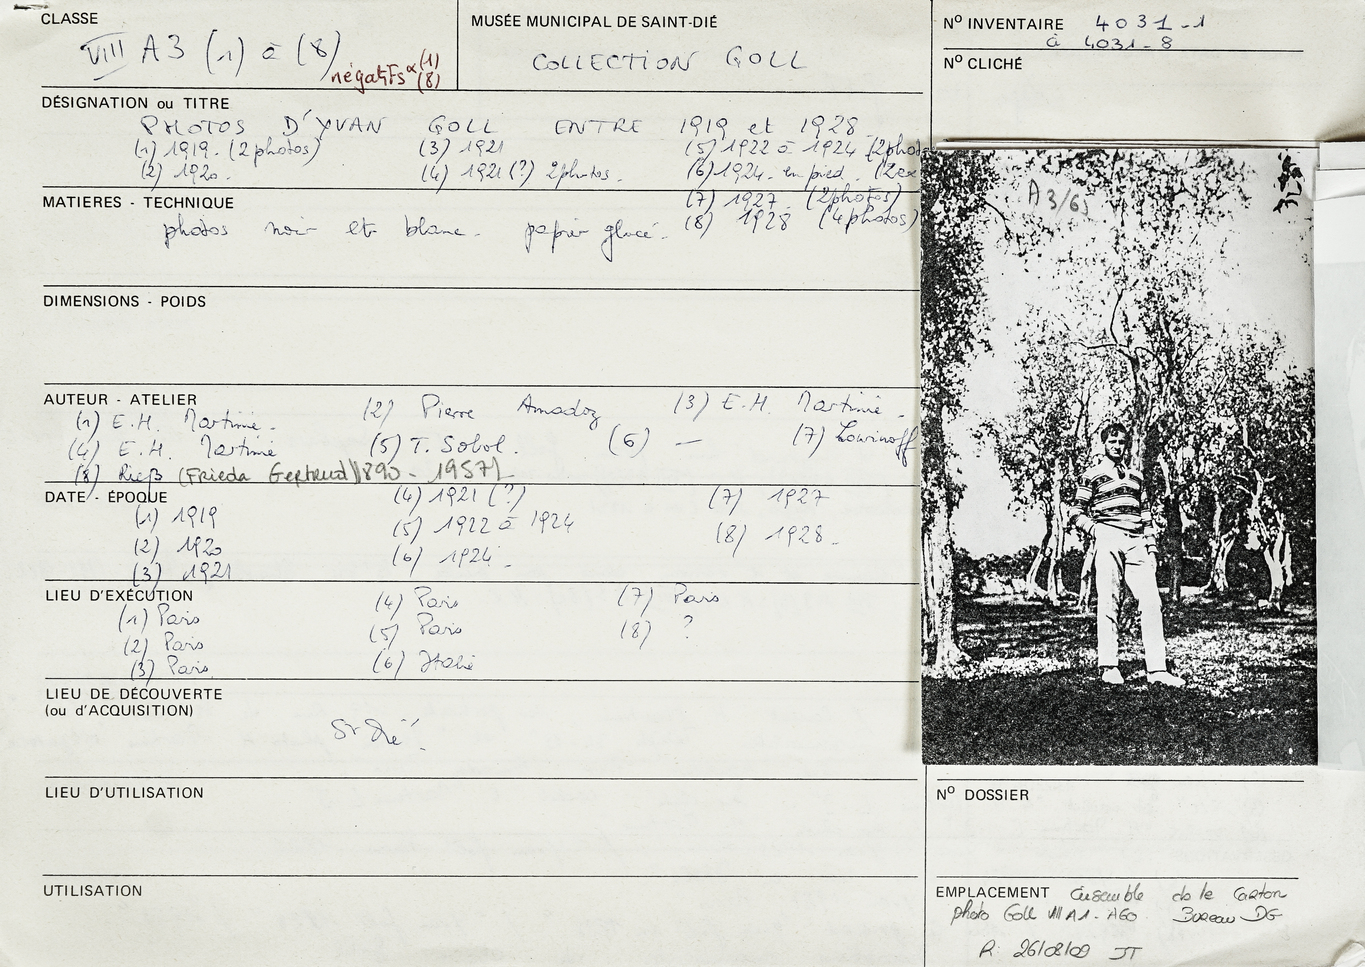 CLASSE
VIII A3 (1) à (8)
négatifs (1)
(8)
MUSÉE MUNICIPAL DE SAINT-DIÉ
COLLECTION GOLL
N° INVENTAIRE 4031-1
à 4031-8
N° CLICHÉ
DÉSIGNATION ou TITRE
PHOTOS D'YVAN GOLL ENTRE 1919 et 1928
(1) 1919. (2 photos) (3) 1921 (5) 1922 à 1924 (2 photo
(2) 1920. (4) 1921 (?) 2 photos. (6) 1924. en pied. (2 ex
(7) 1927 (2 photos)
(8) 1928 (4 photos)
MATIERES - TECHNIQUE
photos noir et blanc. papier glacé.
A3/6
DIMENSIONS - POIDS
AUTEUR - ATELIER
(1) E.H. Martinié. (2) Pierre Amadoz (3) E.H. Martinié.
(4) E.H. Martinié (5) T. Sobol. (6) — (7) Lowinoff
(8) Rieß (Frieda Gertrud 1890 - 1957)
DATE - ÉPOQUE
(1) 1919
(2) 1920
(3) 1921
(4) 1921 (?)
(5) 1922 à 1924
(6) 1924.
(7) 1927
(8) 1928.
LIEU D'EXÉCUTION
(1) Paris
(2) Paris
(3) Paris
(4) Paris
(5) Paris
(6) Italie
(7) Paris
(8) ?
LIEU DE DÉCOUVERTE
(ou d'ACQUISITION)
St Dié.
LIEU D'UTILISATION
N° DOSSIER
UTILISATION
EMPLACEMENT Ensemble ds le carton
photo Goll VIII A1 - A60 Bureau DG
R. 26/08/09 JT